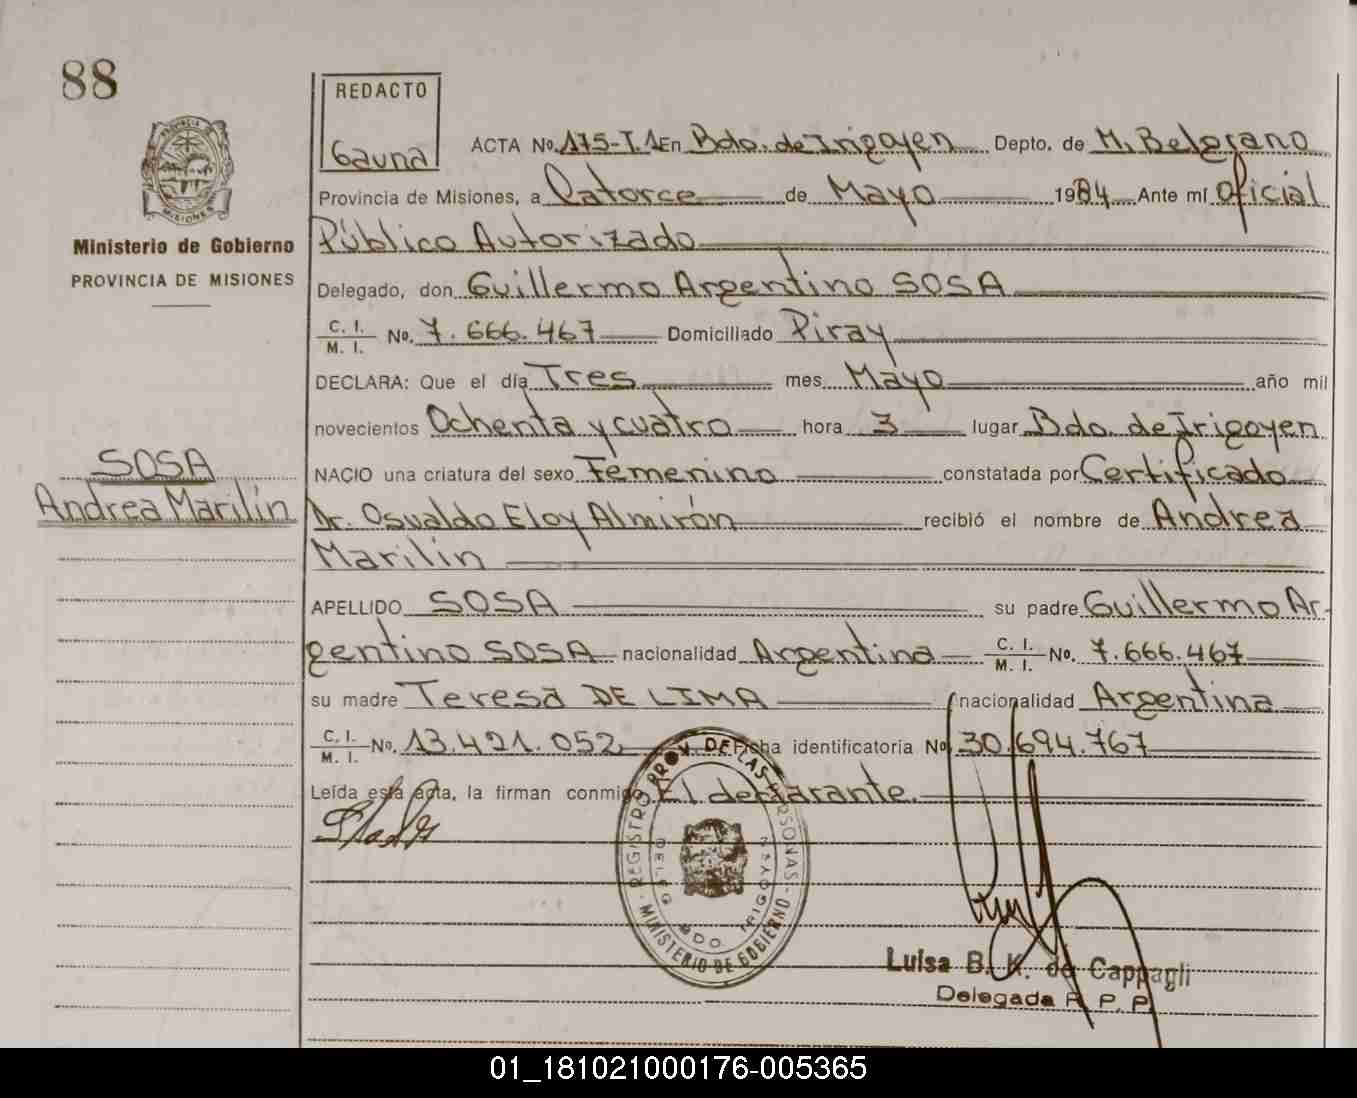 88
REDACTO
Gauna
PROVINCIA DE
MISIONES
Ministerio de Gobierno
PROVINCIA DE MISIONES
SOSA
Andrea Marilín
ACTA No. 175-T.1 En Bdo. de Irigoyen Depto. de M. Belgrano
Provincia de Misiones, a Catorce de Mayo 1984 Ante mí Oficial
Público Autorizado
Delegado, don Guillermo Argentino SOSA
C. I.
M. I. No. 7.666.467 Domiciliado Piray
DECLARA: Que el día Tres mes Mayo año mil
novecientos Ochenta y cuatro hora 3 lugar Bdo. de Irigoyen
NACIO una criatura del sexo Femenino constatada por Certificado
Dr. Osvaldo Eloy Almirón recibió el nombre de Andrea
Marilín
APELLIDO SOSA su padre Guillermo Ar-
gentino SOSA nacionalidad Argentina C. I.
M. I. No. 7.666.467
su madre Teresa DE LIMA nacionalidad Argentina
C. I.
M. I. No. 13.421.052 Ficha identificatoria No 30.694.767
Leída esta acta, la firman conmigo El declarante.
REGISTRO PROV. DE LAS PERSONAS - MINISTERIO DE GOBIERNO -
DELEG BDO IRIGOYEN
Luisa B. K. de Cappagli
Delegada R. P. P.
01_181021000176-005365